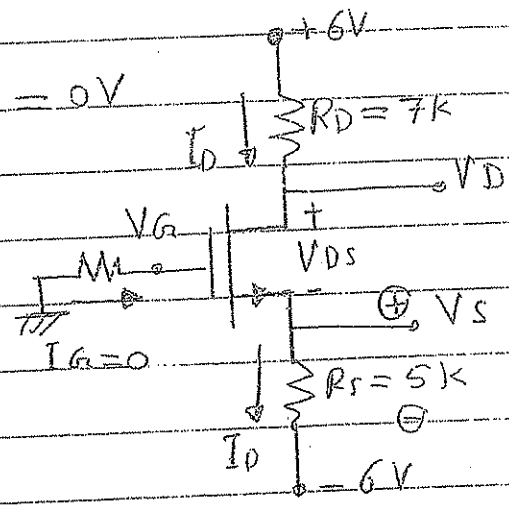 +6V
= 0V
RD = 7K
ID
VD
VG
+
VDS
-
+ VS
IG=0
RS = 5K
-
ID
-6V